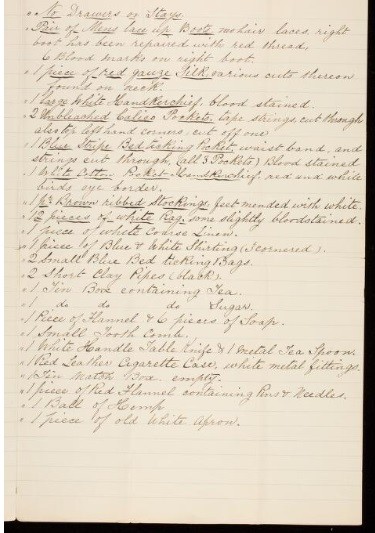 " No Drawers or Stays.
" Pair of Mens lace up Boots, mohair laces, right
boot has been repaired with red thread,
6 Blood marks on right boot.
" 1 piece of red gauze Silk, various cuts thereon
found on neck.
" 1 large White Handkerchief, blood stained.
" 2 Unbleached Calico Pockets, tape strings, cut through
also top left hand corners, cut off one.
" 1 Blue Stripe Bed ticking Pocket, waist band, and
strings cut through, (all 3 Pockets) Blood stained
" 1 White Cotton Pocket Handkerchief, red and white
birds eye border.
" 1 pr Brown ribbed Stockings, feet mended with white.
" 12 pieces of white Rag, some slightly bloodstained.
" 1 piece of white Coarse Linen.
" 1 piece of Blue & White Shirting (3 cornered).
" 2 Small Blue Bed ticking Bags.
" 2 Short Clay Pipes (black).
" 1 Tin Box containing Tea.
" 1 do do do Sugar.
" 1 Piece of Flannel & 6 pieces of Soap.
" 1 Small Tooth Comb.
" 1 White Handle Table Knife & 1 metal Tea Spoon.
" 1 Red Leather Cigarette Case, white metal fittings.
" 1 Tin Match Box. empty.
" 1 piece of Red Flannel containing Pins & Needles.
" 1 Ball of Hemp
" 1 piece of old White Apron.